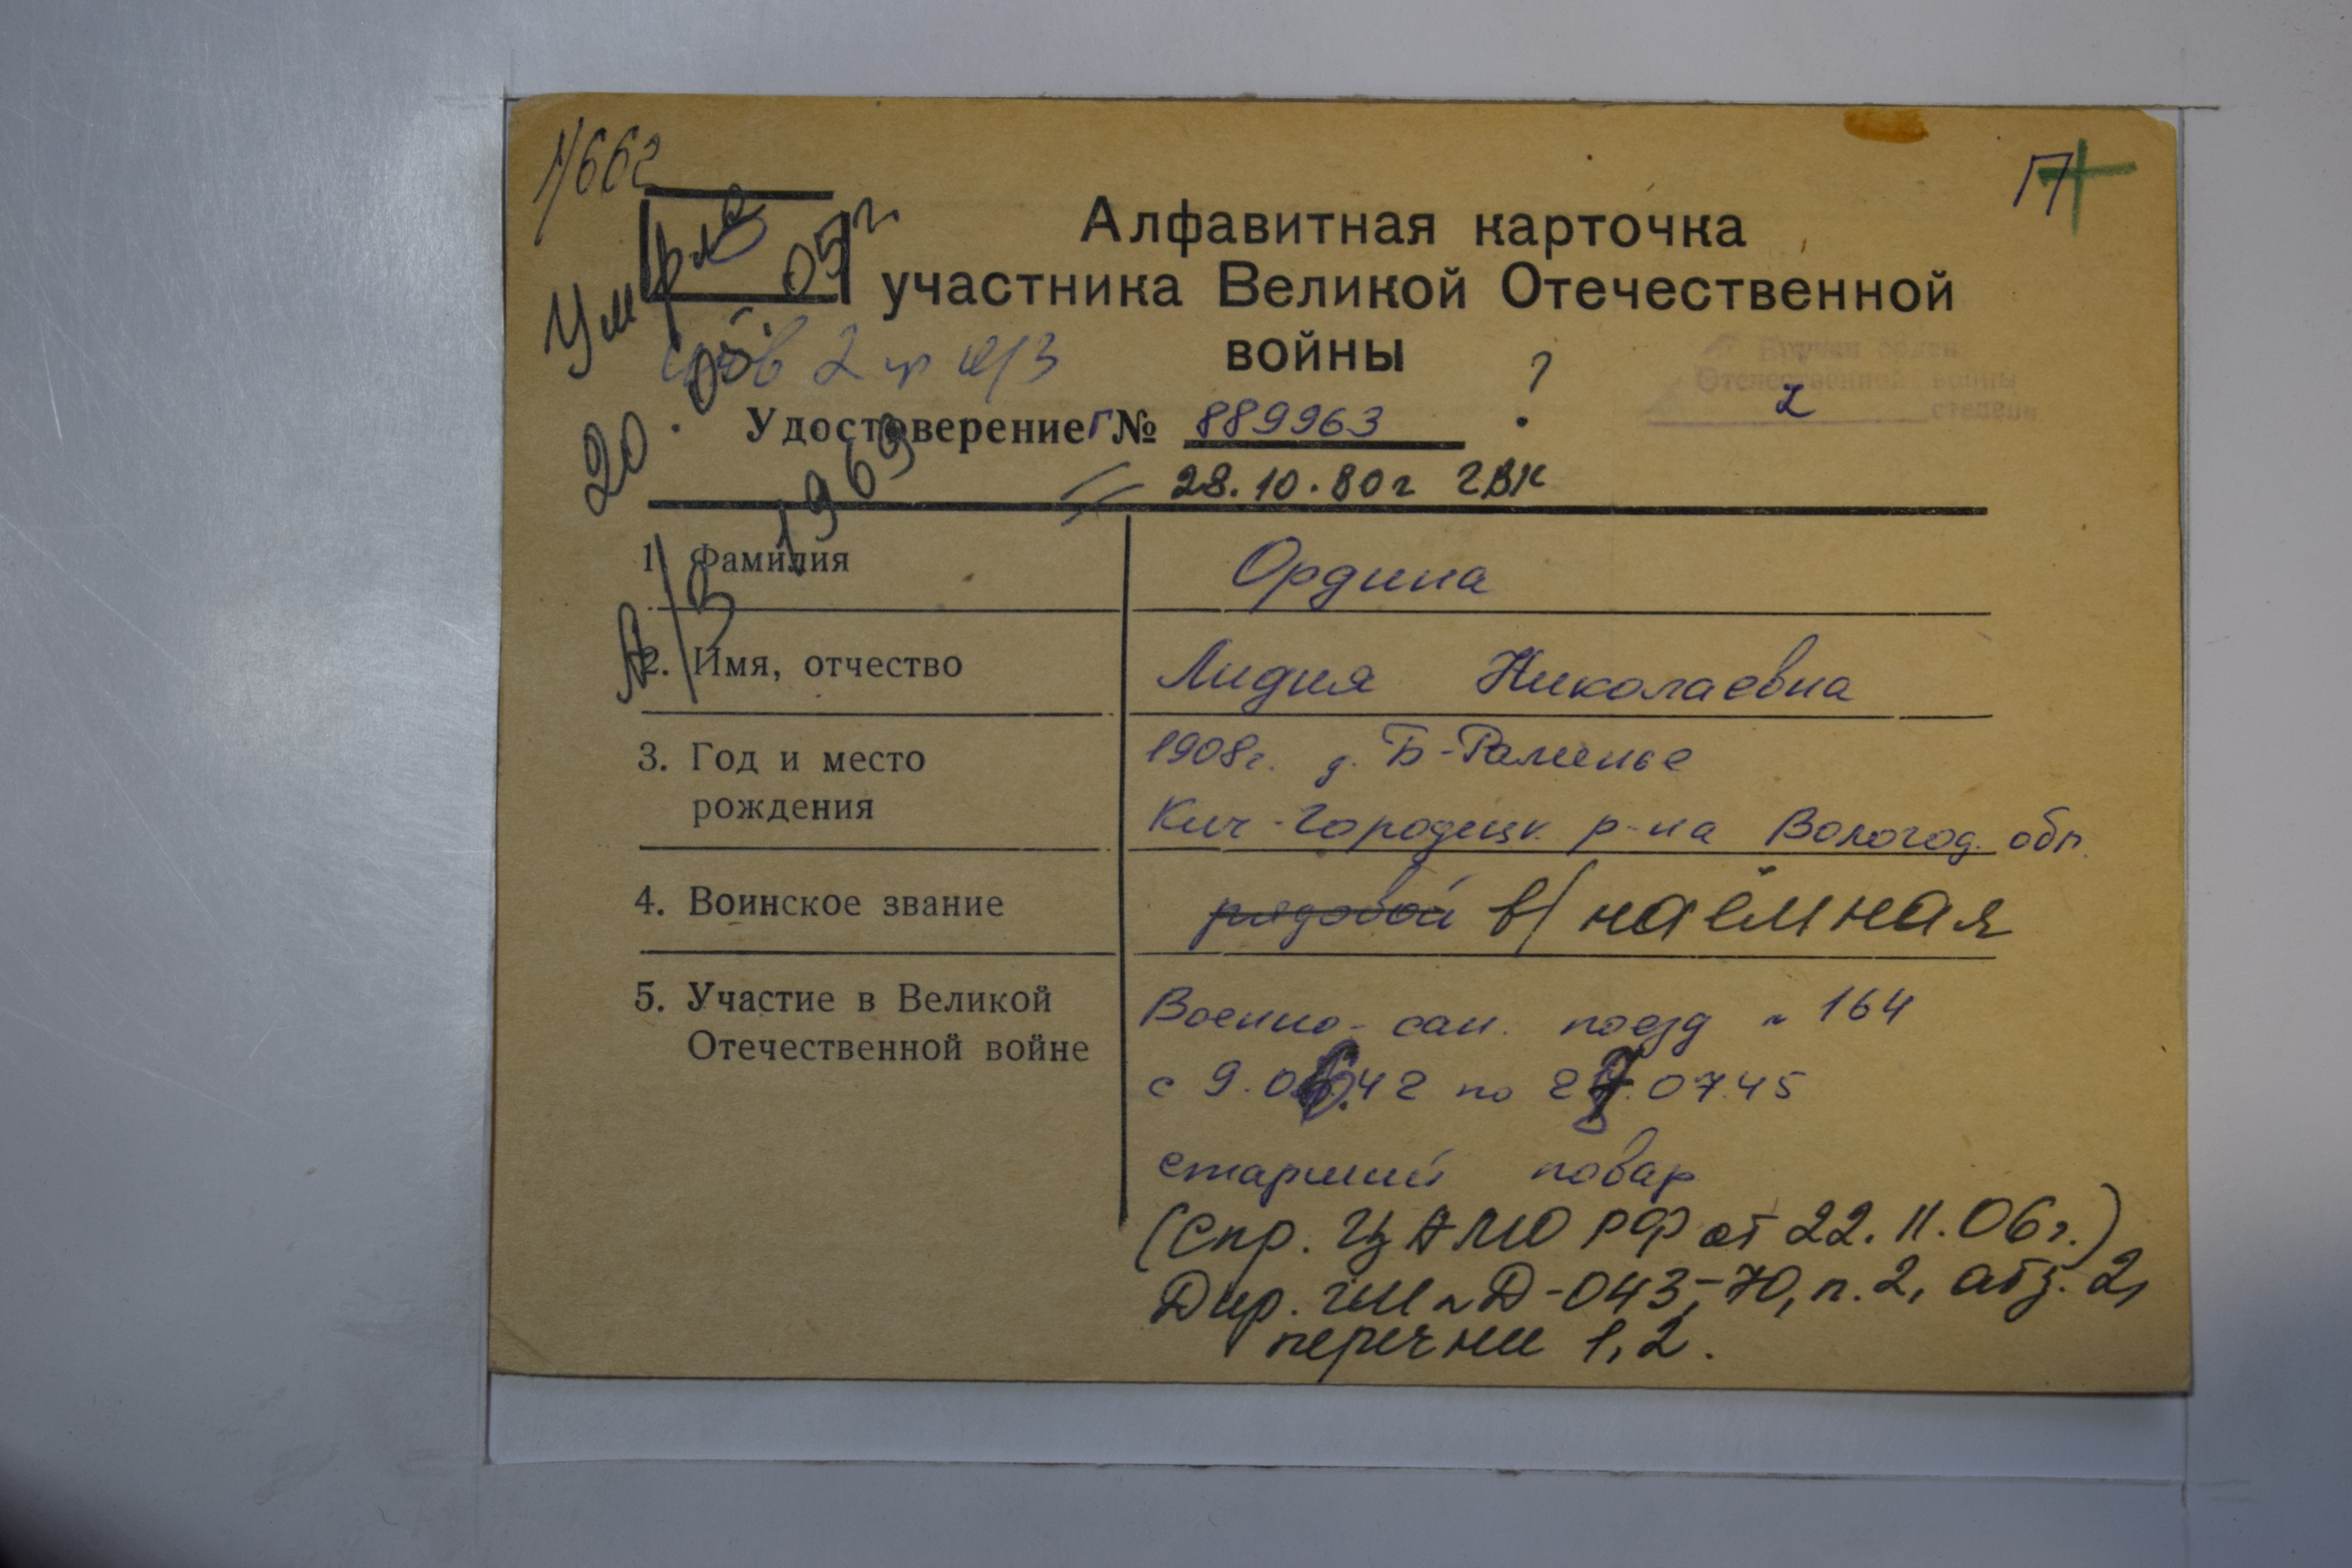 1/662
П
Умерла
20.05.05г
Алфавитная карточка
участника Великой Отечественной
войны
инв 2 гр п/з
?
Вручен орден
Отечественной войны
2 степени
Удостоверение Г № 889963
28.10.80г ГВК
1969
А/З
1. Фамилия
Ордина
2. Имя, отчество
Лидия Николаевна
3. Год и место
рождения
1908г. д. Б-Раменье
Кич-Городецк. р-на Вологод. обл.
4. Воинское звание
рядовой в/наёмная
5. Участие в Великой
Отечественной войне
Военно-сан. поезд № 164
с 9.06.42 по 27.07.45
старший повар
(Спр. ЦАМО РФ от 22.11.06г.)
Дир. ГШ № Д-043,-70, п.2, абз.2,
перечни 1,2.